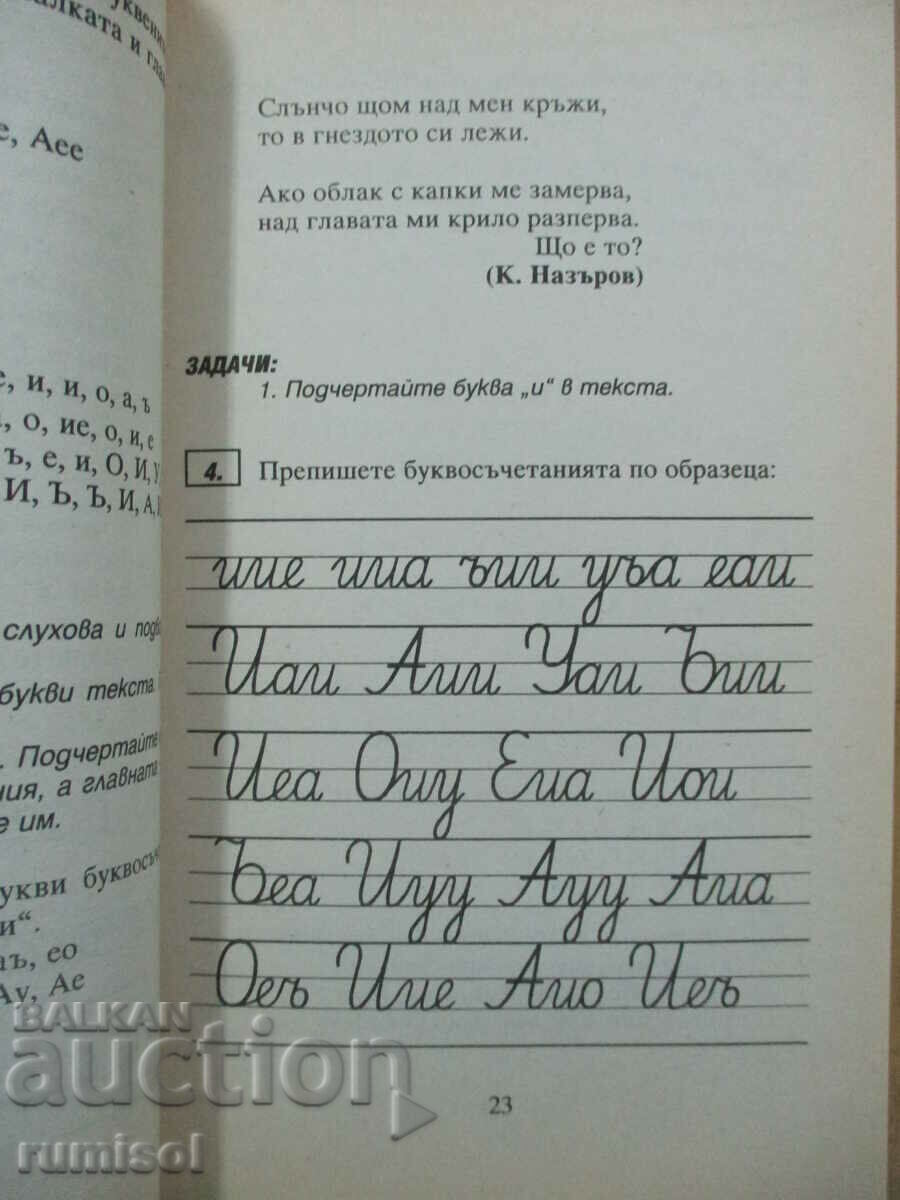 алката и
е, Аее
е, и, и, о, а, ъ
о, ие, о, и, е
ъ, е, и, О, И, У
И, Ъ, Ъ, И, А,
слухова и
букви текста.
. Подчертайте
ния, а главната
е им.
укви
и“.
аъ, ео
Ау, Ае
Слънчо щом над мен кръжи,
то в гнездото си лежи.
Ако облак с капки ме замерва,
над главата ми крило разперва.
Що е то?
(К. Назъров)
ЗАДАЧИ:
1. Подчертайте буква „и“ в текста.
4. Препишете буквосъчетанията по образеца:
иие ииа ъии уъа еаи
Иаи Аии Уаи Ъии
Иеа Оиу Еиа Иои
Ъеа Иуу Ауу Аиа
Оеъ Иие Аио Иеъ
23
BALKAN
auction
rumisol